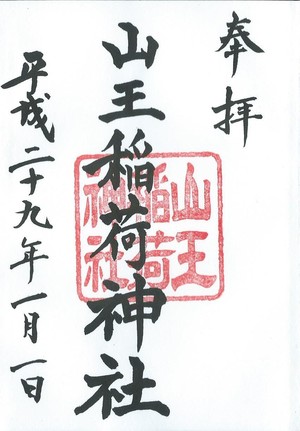 奉拝
山王稲荷神社
山王
稲荷
神社
平成二十九年一月一日